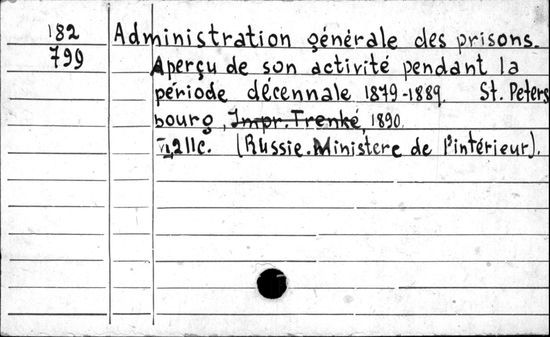 182 Administration générale des prisons.
799 Aperçu de son activité pendant la
période décennale 1879-1889. St. Peters
bourg, Impr. Trenké, 1890.
VI, 211c. (Russie. Ministère de l'intérieur).